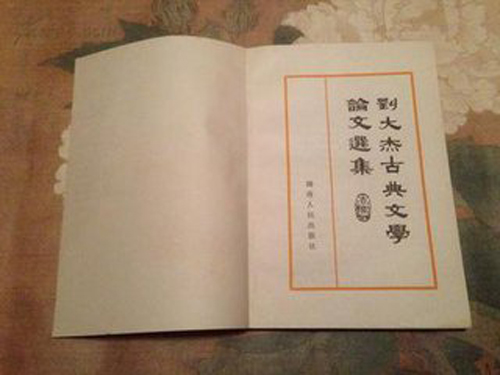 劉大杰古典文學
論文選集
湖南人民出版社